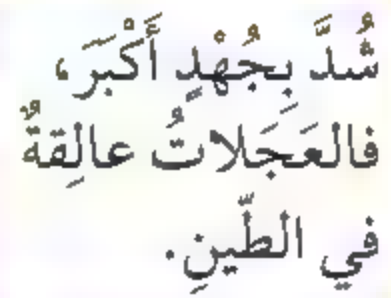 شُدَّ بِجُهْدٍ أَكْبَرَ،
فالعَجَلاتُ عالِقةٌ
في الطّينِ.